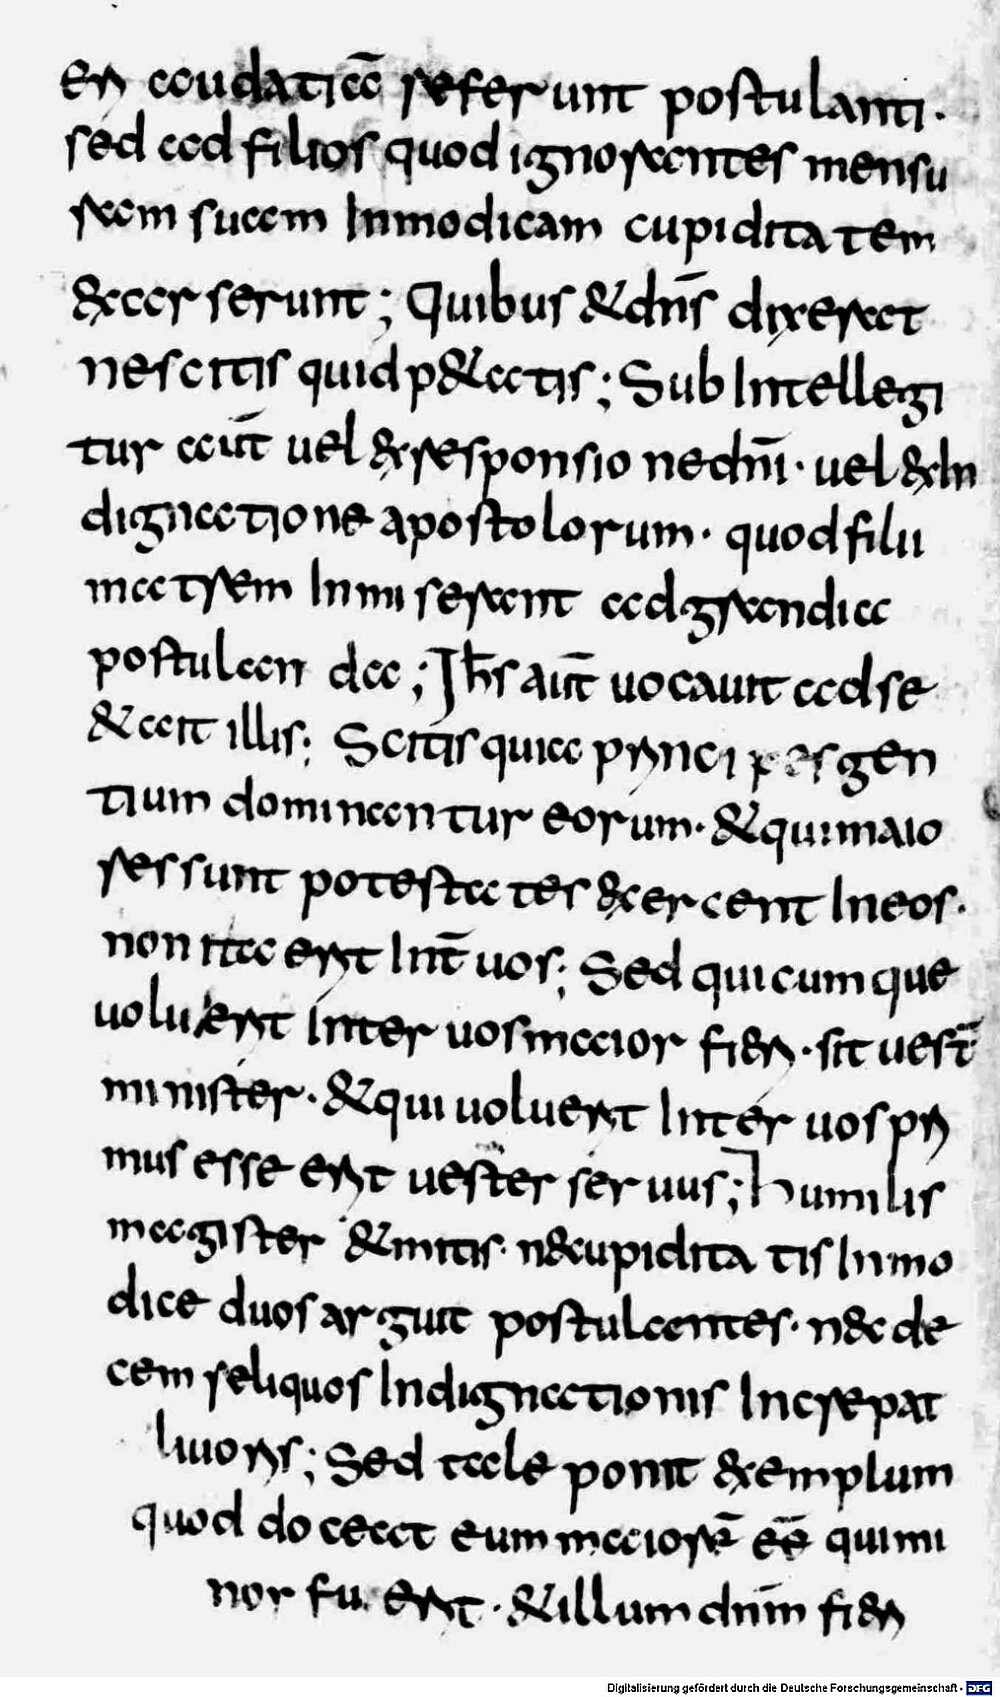 eri audatia referunt postulanti·
sed ad filios quod ignorantes mensu
ram suam Inmodicam cupiditatem
&arserunt; Quibus & dn̄s dixerat
nescitis quid p&atis; Subintellegi
tur aut̄ uel & responsione dn̄i· uel & In
dignatione apostolorum· quod filii
matrem Inmiserant ad grandia
postulanda; Ih̄s aut̄ uocauit ad se
& ait illis; Scitis quia principes gen
tium dominantur eorum· & qui maio
res sunt potestates &ercent In eos·
non ita erit Int̄ uos; Sed quicumque
uoluerit Inter uos maior fieri· sit uest̄
minister· & qui uoluerit Inter uos pri
mus esse erit uester seruus; humilis
magister & mitis· n&cupiditatis Inmo
dice duos arguit postulantes· nec de
cem reliquos Indignationis Increpat
liuoris; Sed tale ponit &emplum
quod doceat eum maiorē eē qui mi
nor fuerit· & illum dn̄m fieri
Digitalisierung gefördert durch die Deutsche Forschungsgemeinschaft - DFG